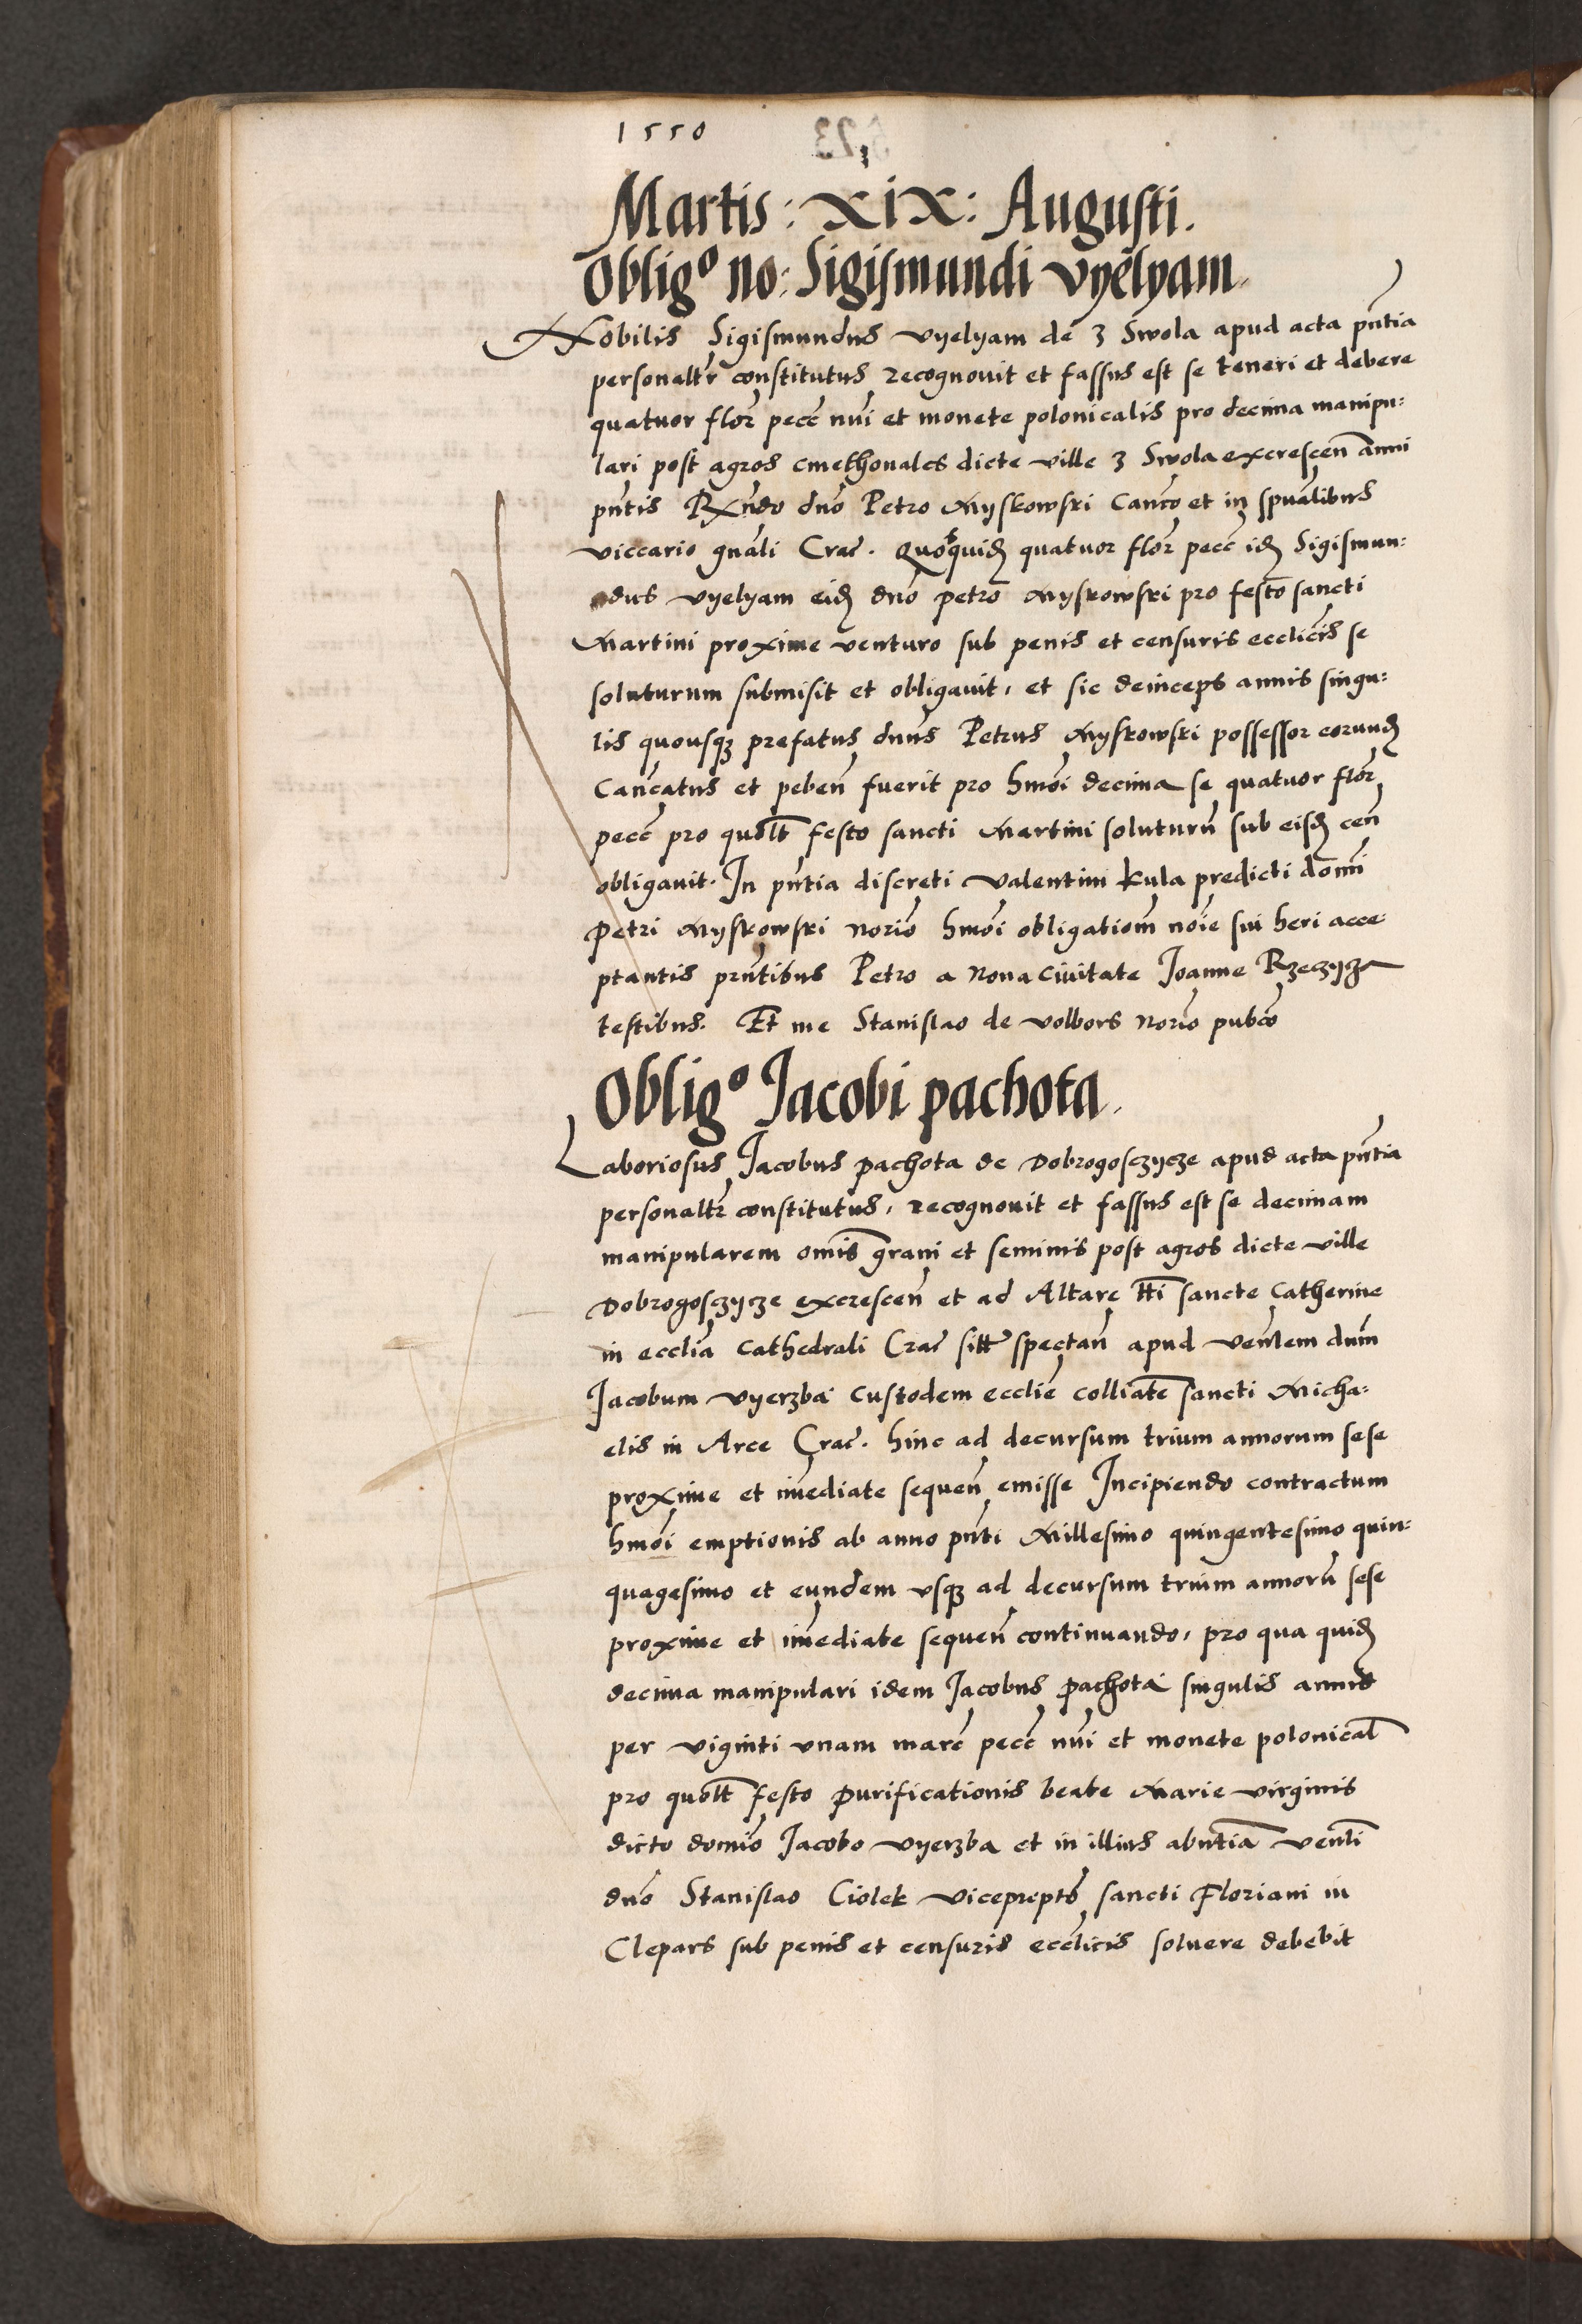 1550
Martis: XIX: Augusti.
Oblig° no: Sigismundi vyelyam.
Nobilis Sigismundus vyelyam de 3 Swola apud acta pn̄tia
personalr̄ constitutus recognouit et fassus est se teneri et debere
quatuor flor̄ pecc̄ nūi et monete polonicalis pro decima manipu:
lari post agros cmethonales dicte ville 3 Swola excrescen̄ anni
pn̄tis Rx̄ndo dn̄o Petro Myskowski Can̄co et in spūalibus
viccario gn̄ali Crac̄. Quosquid̄ quatuor flor̄ pecc̄ id̄ Sigismun:
dus vyelyam eid̄ dn̄o petro Myskowski pro festo sancti
Martini proxime venturo sub penis et censuris ecclīcis se
soluturum submisit et obligauit, et sic deinceps annis singu:
lis quousq3 prefatus dn̄us Petrus Myskowski possessor eorund̄
Can̄catus et peben̄ fuerit pro hmōi decima se quatuor flor̄
pecc̄ pro quolt̄ festo sancti Martini soluturū sub eisd̄ cen̄
obligauit. In pn̄tia discreti Valentini kula predicti domī
Petri Myskowski norīo hmōi obligationm̄ noīe sui heri acce:
ptantis pn̄tibus Petro a Noua Ciuitate Joanne Rzeczyza
testibus. Et me Stanislao de volbors Norīo pubco
Oblig° Jacobi pachota.
Laboriosus Jacobus pachota de Dobrogosczycze apud acta pn̄tia
personalr̄ constitutus, recognouit et fassus est se decimam
manipularem om̄is grani et seminis post agros dicte ville
Dobrogosczycze excrescen̄ et ad Altare tt̄i sancte Catherine
in ecclīa Cathedrali Crac̄ sitt̄ spectan̄ apud Ven̄lem dn̄m
Jacobum vyerzba Custodem ecclīe collīate sancti Micha:
elis in Arce Crac̄. hinc ad decursum trium annorum sese
proxime et im̄ediate sequen̄ emisse Incipiendo contractum
hmōi emptionis ab anno pn̄ti Millesimo quingentesimo quin:
quagesimo et eundem vsq3 ad decursum trium annorū sese
proxime et im̄ediate sequen̄ continuando, pro qua quid̄
decima manipulari idem Jacobus pachota singulis annis
per viginti vnam marc̄ pecc̄ nūi et monete polonical̄
pro quolt̄ festo purificationis beate Marie virginis
dicto domīo Jacobo vyerzba et in illius abn̄tia ven̄li
dn̄o Stanislao Ciolek viceprepto sancti Floriani in
Clepars sub penis et censuris ecclīcis soluere debebit